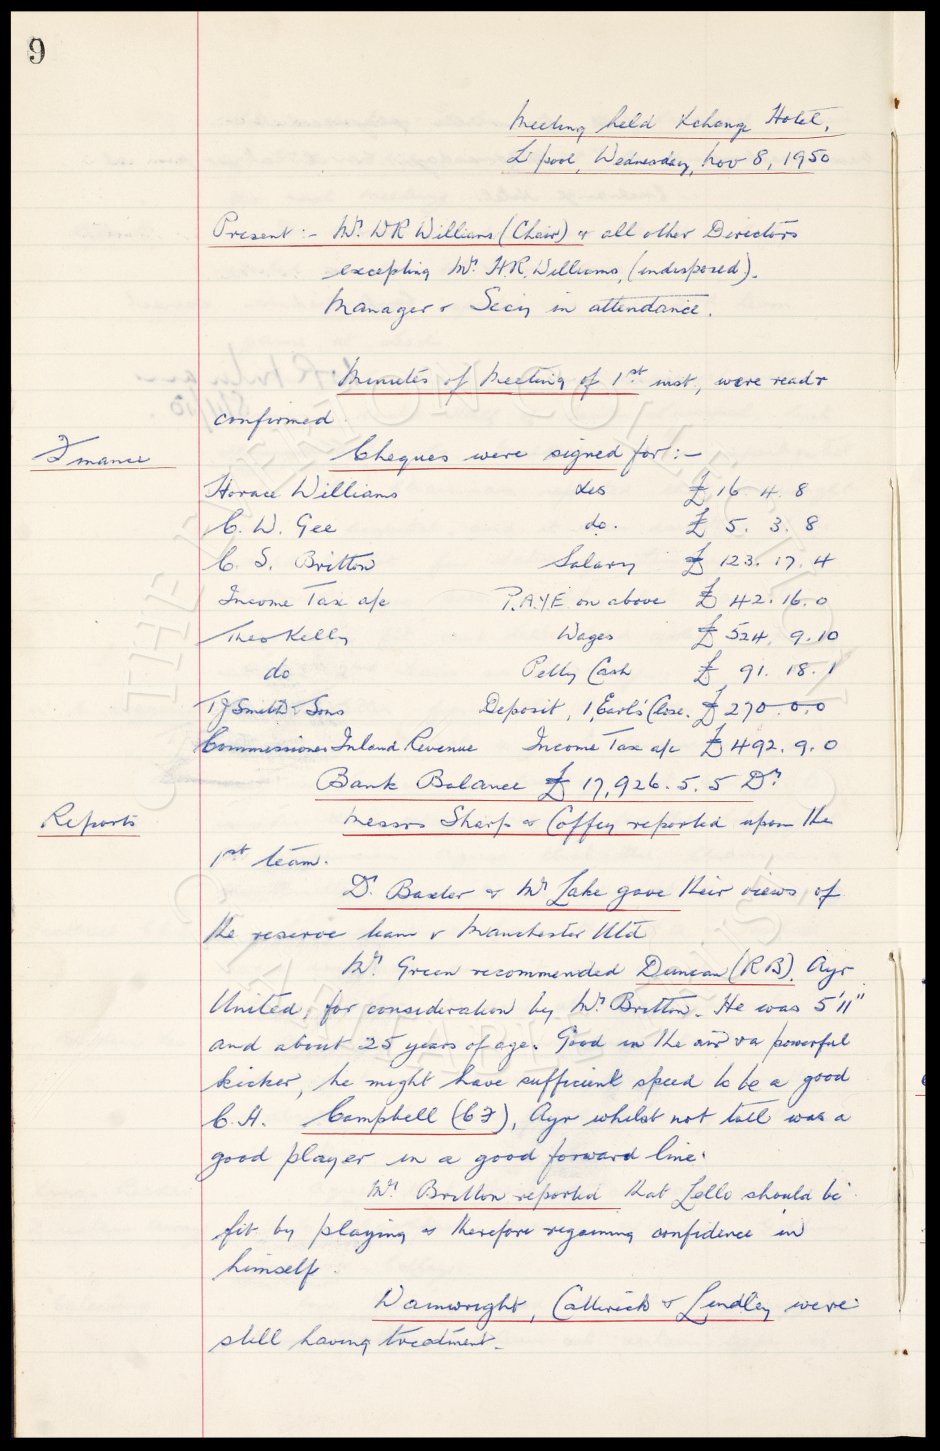 9
Meeting held Xchange Hotel,
L'pool, Wednesday, Nov 8, 1950
Present :- Mr. WR Williams (Chair) & all other Directors
excepting Mr. H.R. Williams, (indisposed).
Manager & Secy in attendance.
Minutes of Meeting of 1st inst, were read &
confirmed.
Finance
Cheques were signed for :-
Horace Williams Exs £ 16. 4. 8
C. W. Gee do. £ 5. 3. 8
C. S. Britton Salary £ 123. 17. 4
Income Tax a/c P.A.Y.E. on above £ 42. 16. 0
Theo Kelly Wages £ 524. 9. 10
do Petty Cash £ 91. 18. 1
TJ Smith & Sons Deposit, 1, Earl's Close. £ 270. 0. 0
Commissioner Inland Revenue Income Tax a/c £ 492. 9. 0
Bank Balance £ 17,926. 5. 5 Dr
Reports
Messrs Sharp & Coffey reported upon the
1st team.
Dr. Baxter & Mr Lake gave their views of
the reserve team v Manchester Utd
Mr. Green recommended Duncan (R B). Ayr
United, for consideration by Mr. Britton. He was 5'11"
and about 25 years of age. Good in the air & a powerful
kicker, he might have sufficient speed to be a good
C.H. Campbell (C F), Ayr whilst not tall was a
good player in a good forward line.
Mr. Britton reported that Lello should be
fit by playing & therefore regaining confidence in
himself.
Wainwright, Catterick & Lindley were
still having treatment.